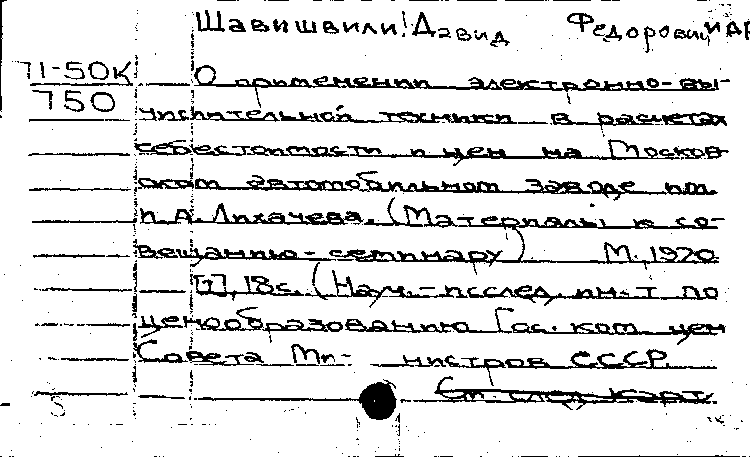 Шавишвили, Давид Федорович и др
71-50к О применении электронно-вы-
750
числительной техники в расчетах
себестоимости и цен на Москов-
ском автомобильном заводе им.
И.А. Лихачева. (Материалы к со-
вещанию-семинару). М., 1970
[1], 18с. (Науч.-исслед. ин-т по
ценообразованию Гос. ком. цен
Совета Ми- нистров СССР.
См. след. карт.
S